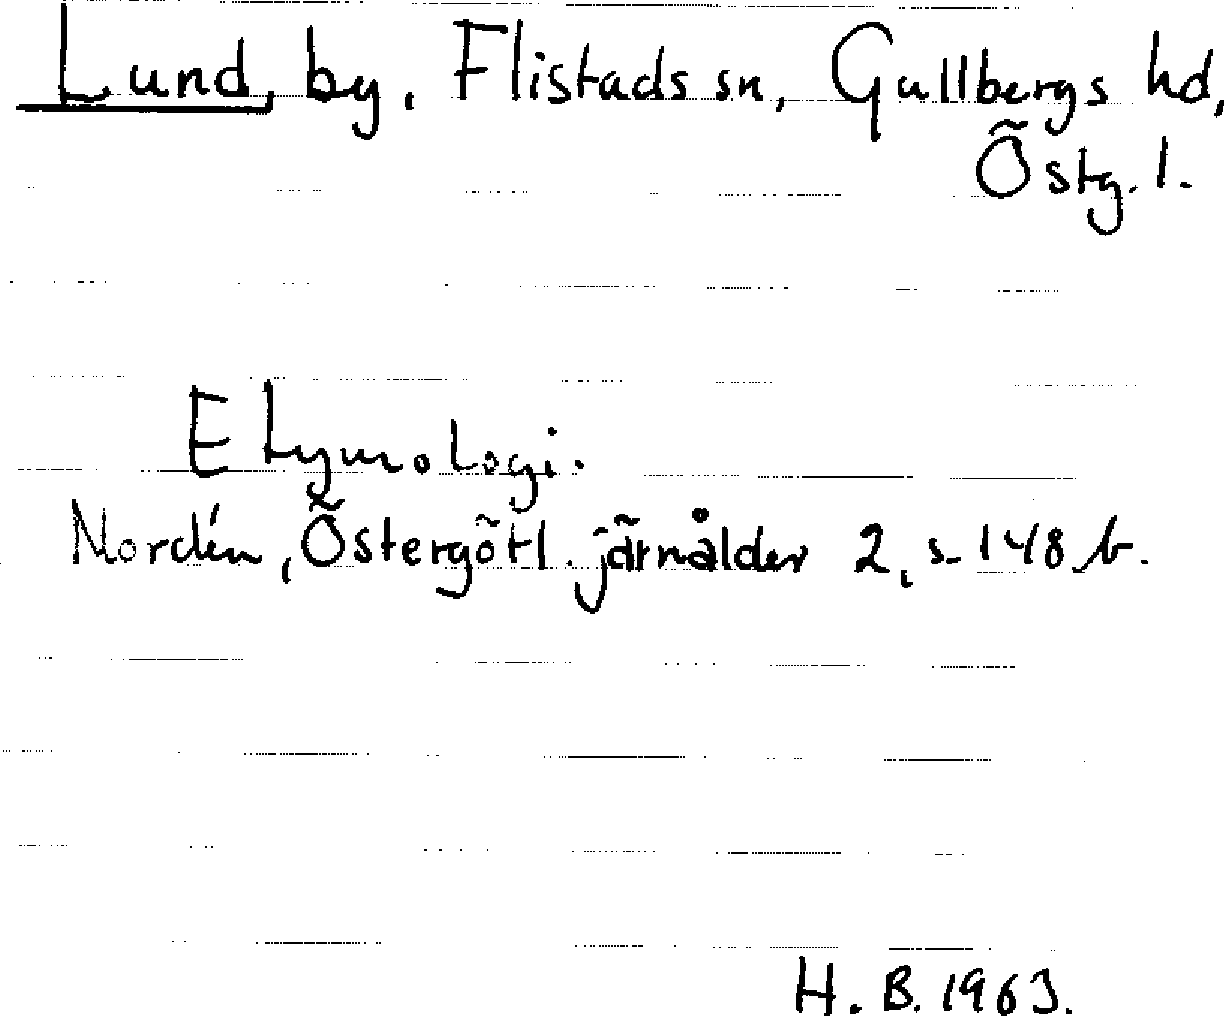 Lund, by, Flistads sn, Gullbergs hd,
Östg. l.
Etymologi.
Nordén, Östergötl. järnålder 2, s. 148 b.
H. B. 1963.